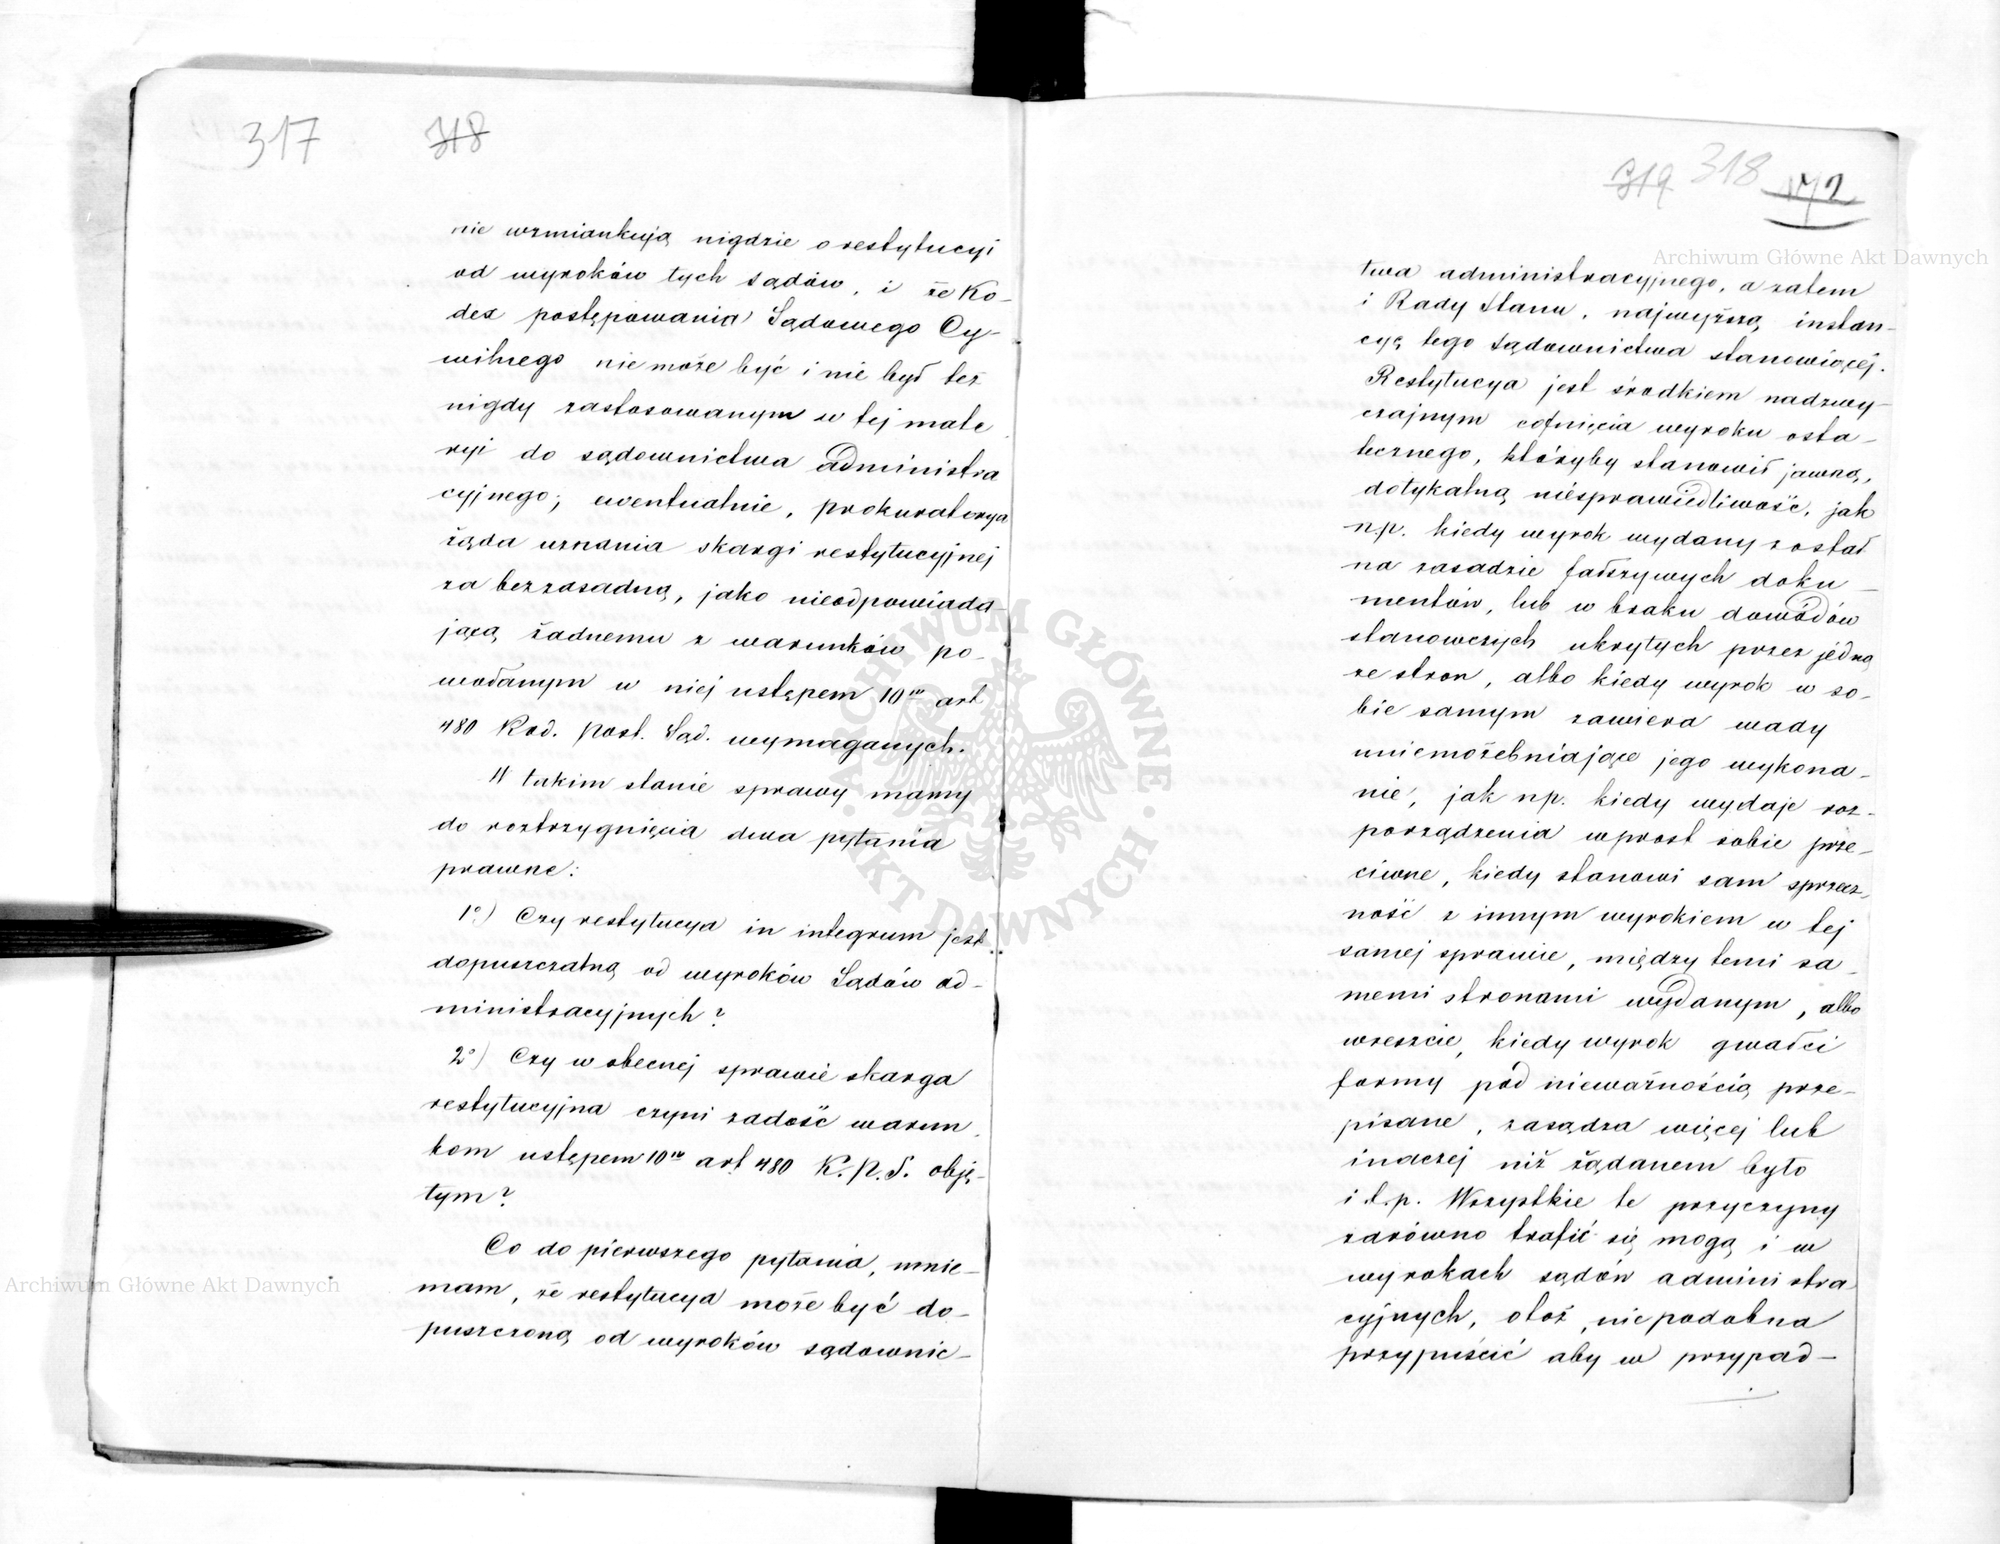 317 318
nie wzmiankują nigdzie o restytucyi
od wyroków tych sądów, i że Ko-
dex postępowania Sądowego Cy-
wilnego nie może być i nie był też
nigdy zastosowanym w tej mate
ryi do sądownictwa administra
cyjnego; ewentualnie, prokuratorya
żąda uznania skargi restytucyjnej
za bezzasadną, jako nieodpowiada-
jącą żadnemu z warunków po-
wołanym w niej ustępem 10ᵐ art
480 Kod. post. Sąd. wymaganych.
W takim stanie sprawy mamy
do roztrzygnięcia dwa pytania
prawne:
1º) Czy restytucya in integrum jest
dopuszczalną od wyroków Sądów ad-
ministracyjnych?
2º) Czy w obecnej sprawie skarga
restytucyjna czyni zadość warun
kom ustępem 10ᵐ art 480 K.P.S. obję-
tym?
Co do pierwszego pytania, mnie-
mam, że restytucya może być do-
puszczoną od wyroków sądownic-
319 318 172
twa administracyjnego, a zatem
i Rady Stanu, najwyższą instan-
cyę tego sądownictwa stanowiącej.
Restytucya jest środkiem nadzwy-
czajnym cofnięcia wyroku osta-
tecznego, któryby stanowił jawną,
dotykalną niesprawiedliwość, jak
np. kiedy wyrok wydany został
na zasadzie fałszywych doku-
mentów, lub w braku dowodów
stanowczych ukrytych przez jedną
ze stron, albo kiedy wyrok w so-
bie samym zawiera wady
uniemożebniające jego wykona-
nie, jak np. kiedy wydaje roz-
porządzenia wprost sobie prze-
ciwne, kiedy stanowi sam sprzecz-
ność z innym wyrokiem w tej
samej sprawie, między temi sa-
memi stronami wydanym, albo
wreszcie, kiedy wyrok gwałci
formy pod nieważnością prze-
pisane, zasądza więcej lub
inaczej niż żądanem było
i t.p. Wszystkie te przyczyny
zarówno trafić się mogą i w
wyrokach sądów administra
cyjnych, otóż, niepodobna
przypuścić aby w przypad-
Archiwum Główne Akt Dawnych
Archiwum Główne Akt Dawnych
ARCHIWUM GŁÓWNE · AKT DAWNYCH ·